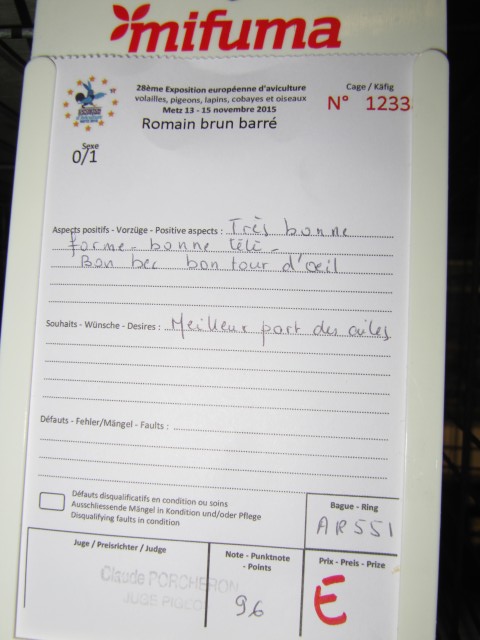 mifuma
28ème Exposition européenne d'aviculture
volailles, pigeons, lapins, cobayes et oiseaux
Metz 13 - 15 novembre 2015
Romain brun barré
Cage / Käfig
N° 1233
Sexe
0/1
Aspects positifs - Vorzüge - Positive aspects : Très bonne
forme - bonne tête -
Bon bec bon tour d'oeil
Souhaits - Wünsche - Desires : Meilleur port des ailes
Défauts - Fehler/Mängel - Faults :
Défauts disqualificatifs en condition ou soins
Ausschliessende Mängel in Kondition und/oder Pflege
Disqualifying faults in condition
Bague - Ring
AR551
Juge / Preisrichter / Judge
Claude PORCHERON
JUGE PIGEO
Note - Punktnote
- Points
96
Prix - Preis - Prize
E